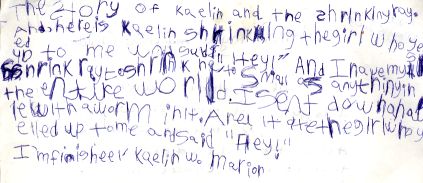 The story of Kaelin and the shrinking ray.
And here is Kaelin shrinking the girl who ye
ed up to me and said "Hey!" And I have my
shrink ray to shrink her to small as anything in
the entire world. I sent down a hа
le with a worm in it. And it ate the girl who y
elled up to me and said "Hey!"
I'm finisheer Kaelin W. Marion